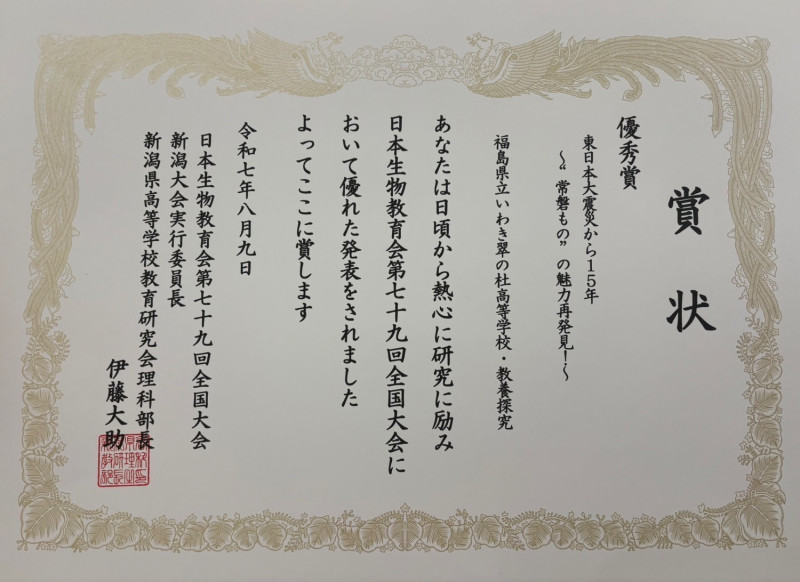 賞状
優秀賞
東日本大震災から15年
〜“常磐もの”の魅力再発見！〜
福島県立いわき翠の杜高等学校・教養探究
あなたは日頃から熱心に研究に励み
日本生物教育会第七十九回全国大会に
おいて優れた発表をされました
よってここに賞します
令和七年八月九日
日本生物教育会第七十九回全国大会
新潟大会実行委員長
新潟県高等学校教育研究会理科部長
伊藤大助